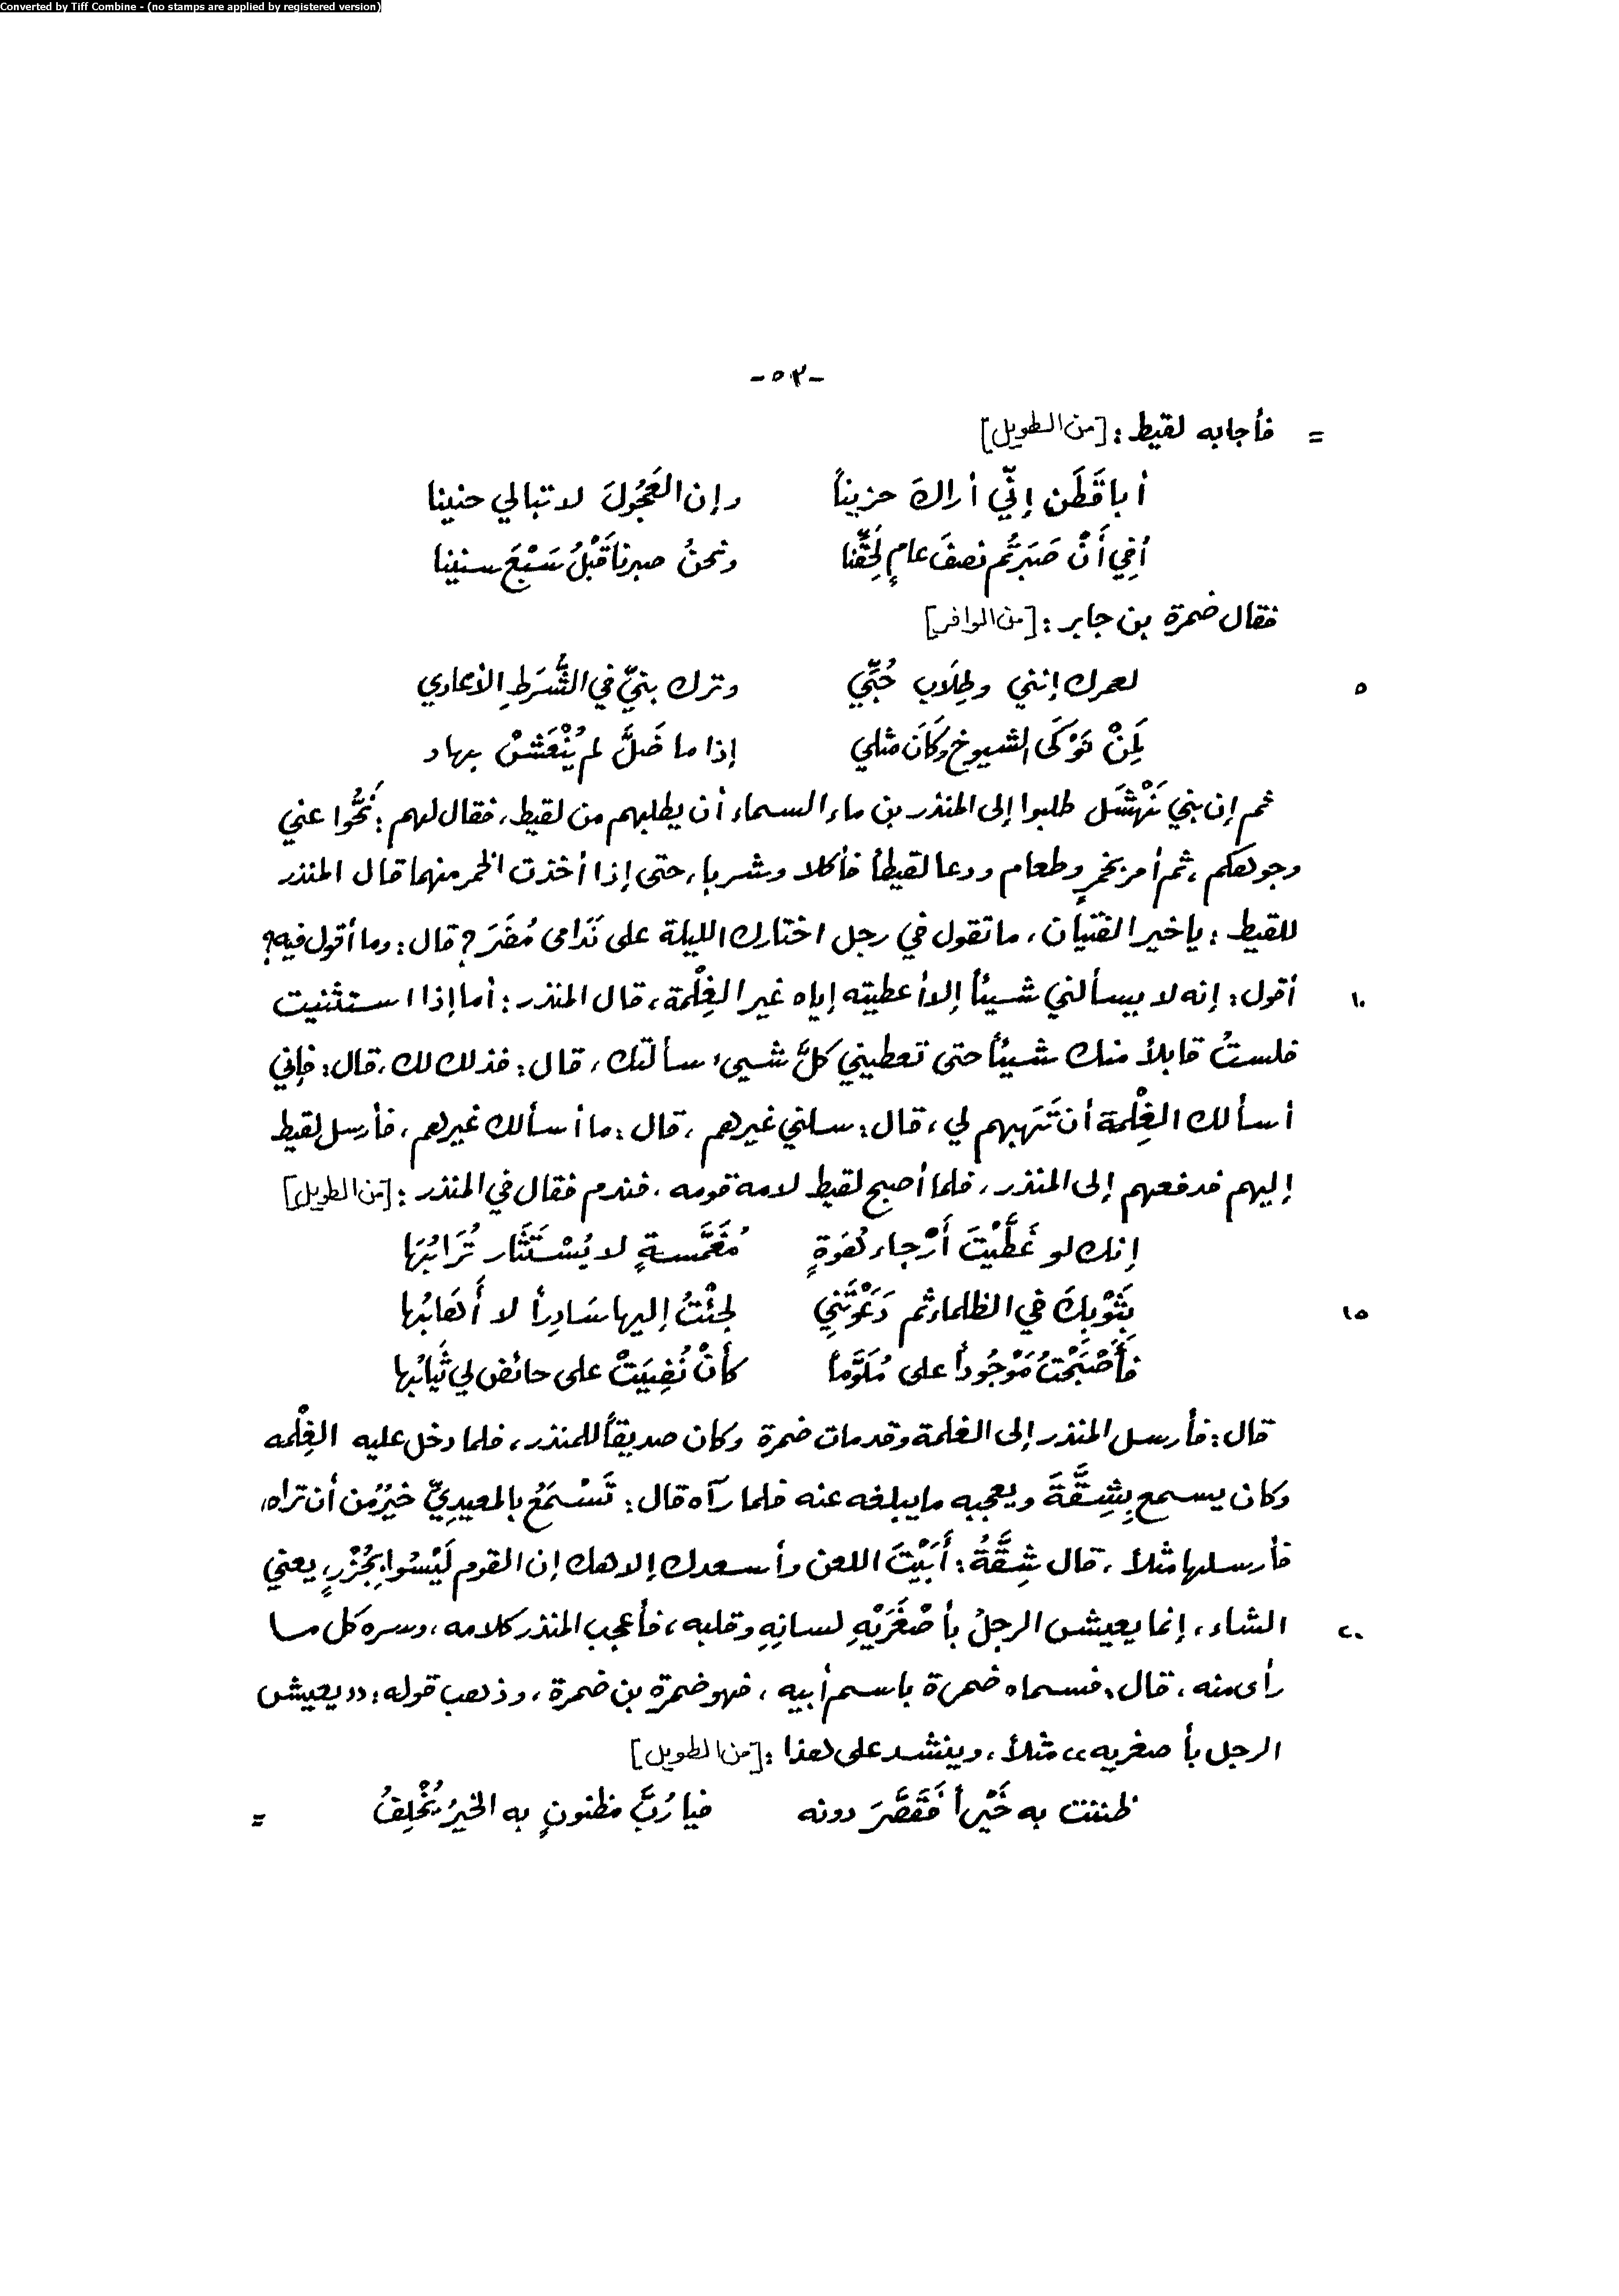 Converted by Tiff Combine - (no stamps are applied by registered version)
-٥٢-
= فأجابه لقيط : [من الطويل]
أبا قَطَن إنّي أراكَ حزيناً وإن العَجُولَ لا تبالي حنينا
أفِي أَنْ صَبَرتُم نصفَ عامٍ لِحَقِّنا ونحنُ صبرنا قَبْلُ سَبْعَ سنينا
فقال ضمرة بن جابر : [من الوافر]
٥ لعمرك إنني وطِلَاب حُبِّي وترك بنيّ في الشُّرَطِ الأعادي
لَمِنْ نَوْكَى الشيوخ وكَانَ مثلي إذا ما ضَلَّ لم يُنْعَشْ بهاد
ثم إن بني نَهْشَل طلبوا إلى المنذر بن ماء السماء أن يطلبهم من لقيط، فقال لهم : نَحُّوا عني
وجوهكم ، ثم أمر بخمرٍ وطعام ودعا لقيطاً فأكلا وشربا، حتى إذا أخذت الخمر منهما قال المنذر
للقيط : يا خير الفتيان ، ما تقول في رجل اختارك الليلة على نَدَامى مُضَرَ ؟ قال : وما أقول فيه ؟
١٠ أقول : إنه لا يسألني شيئاً إلا أعطيته إياه غير الغِلْمة ، قال المنذر : أما إذا استثنيت
فلستُ قابلاً منك شيئاً حتى تعطيني كلَّ شيىء سألتك ، قال : فذلك لك ، قال : فإني
أسألك الغِلْمة أن تَهَبهم لي ، قال : سلني غيرهم ، قال : ما أسألك غيرهم ، فأرسل لقيط
إليهم فدفعهم إلى المنذر ، فلما أصبح لقيط لامه قومه ، فندم فقال في المنذر : [من الطويل]
إنك لو غَطَّيْتَ أَرْجاء هُوةٍ مُغَمَّسةٍ لا يُسْتَثَار تُرَابُهَا
١٥ بِثَوْبِكَ في الظلماء ثم دَعَوْتَنِي لجئْتُ إليها سَادِراً لا أَهَابُها
فَأَصْبَحْتُ مَوْجُوداً على مُلَوَّماً كأنْ نُضِيَتْ على حائض لي ثيابُها
قال : فأرسل المنذر إلى الغلمة وقد مات ضمرة وكان صديقاً للمنذر ، فلما دخل عليه الغِلْمه
وكان يسمع بِشِقَّةَ ويعجبه ما يبلغه عنه فلما رآه قال : تَسْمَعُ بالمعيدِيِّ خيرٌ من أن تراه،
فأرسلها مثلاً ، قال شِقَّةُ : أَبَيْتَ اللعن وأسعدك إلاهك إن القوم لَيْسُوا بِجُزْرٍ، يعني
٢٠ الشاء ، إنما يعيش الرجلُ بأصْغَرَيْهِ لسانِهِ وقلبه ، فأعجب المنذر كلامه ، وسره كل ما
رأى منه ، قال : فسماه ضمرة باسم أبيه ، فهو ضمرة بن ضمرة ، وذهب قوله : «يعيش
الرجل بأصغريه» مثلاً ، وينشد على هذا : [من الطويل]
ظننت به خَيْراً فَقَصَّرَ دونه فيا رُبَّ مظنونٍ به الخيرُ يُخْلِفُ =